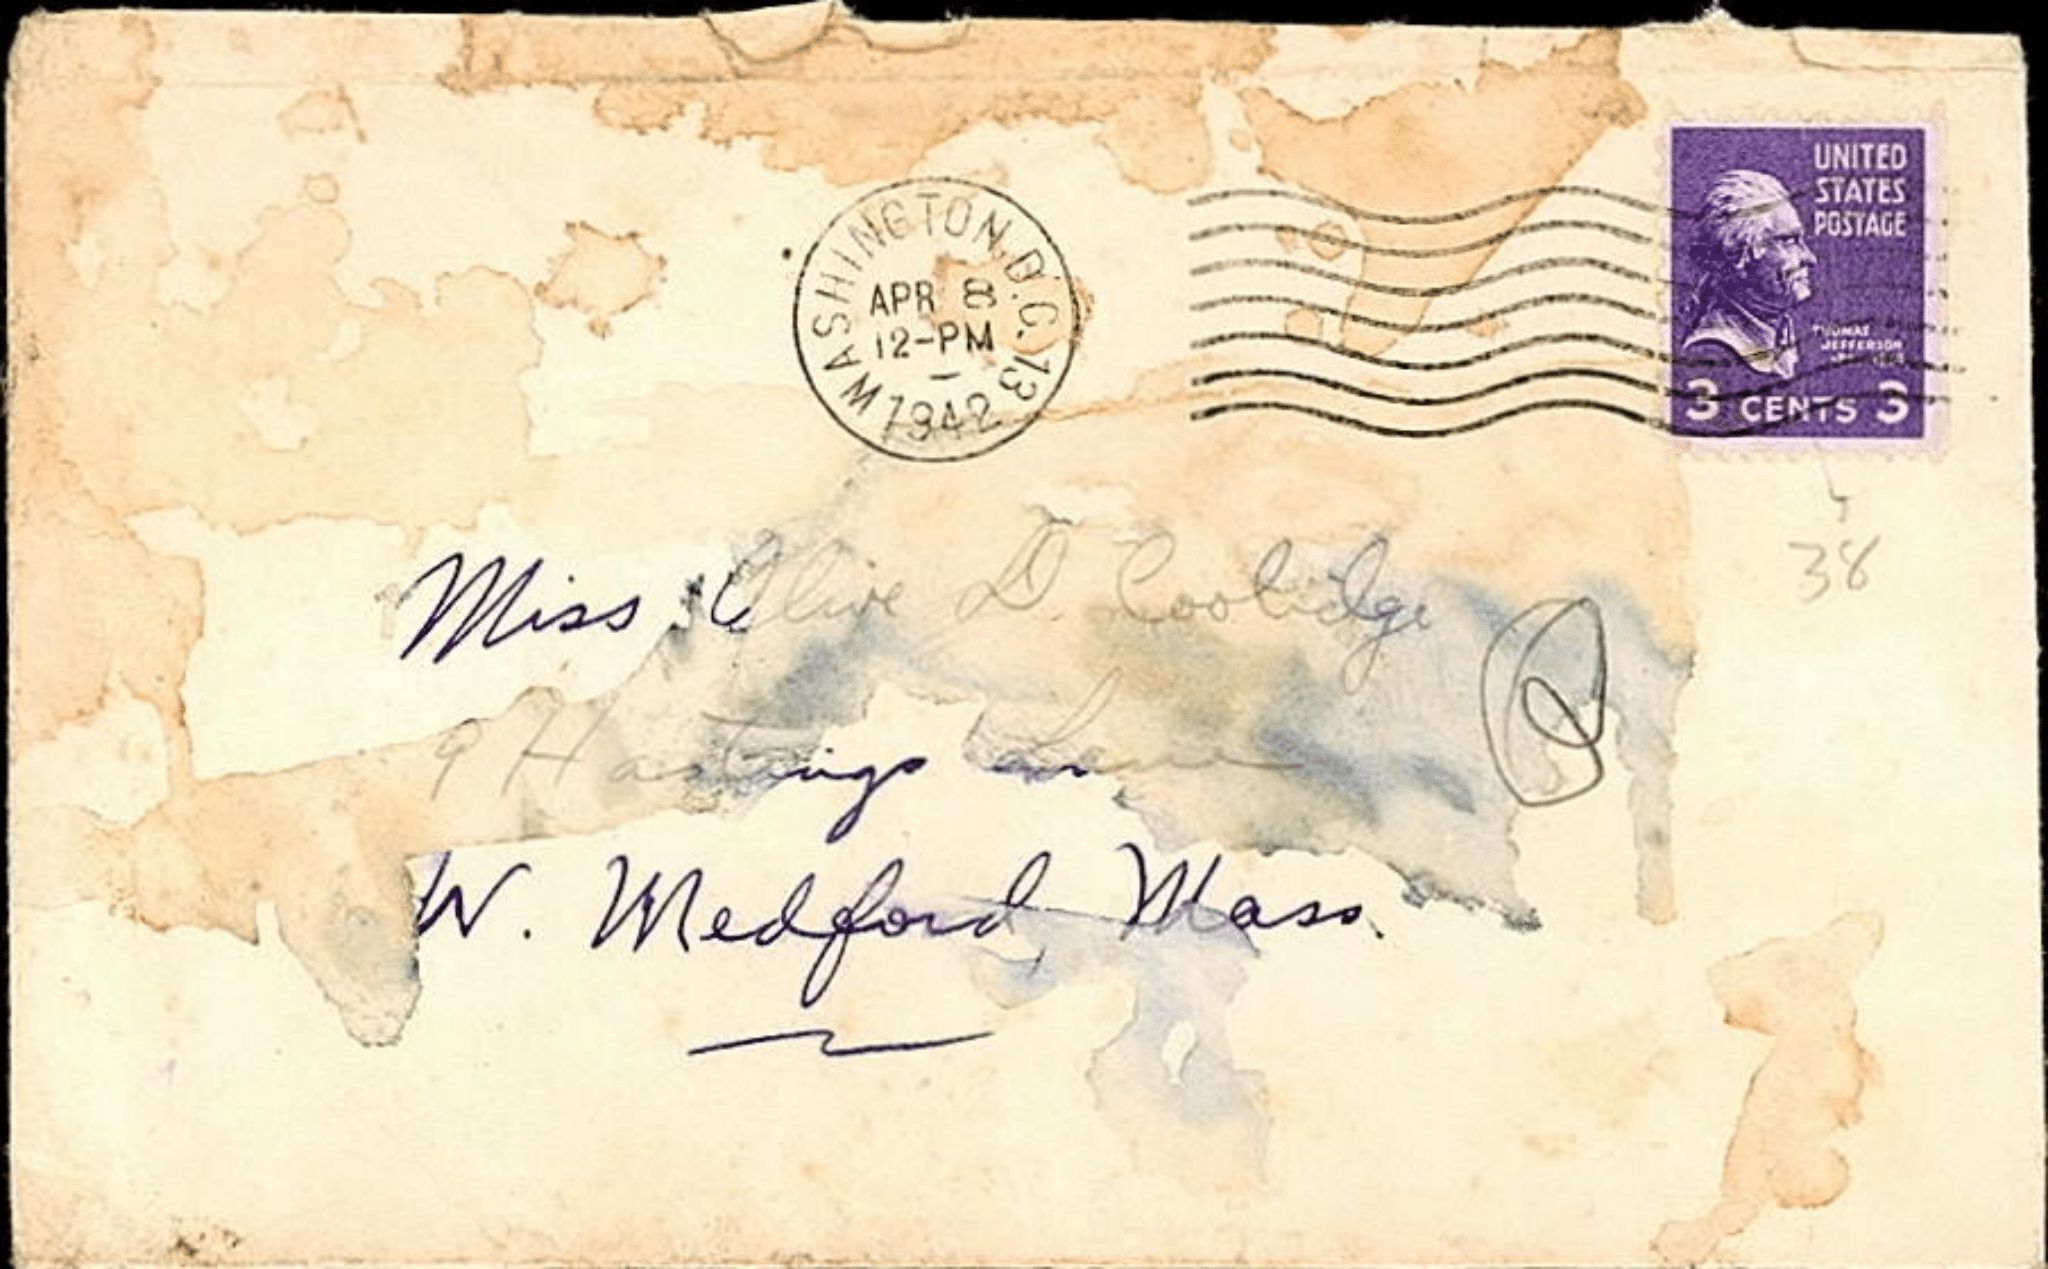 WASHINGTON, D.C. 13
APR 8
12-PM
1942
UNITED
STATES
POSTAGE
THOMAS
JEFFERSON
3 CENTS 3
38
Miss Olive D. Coolidge
9 Hastings Lane
W. Medford, Mass.